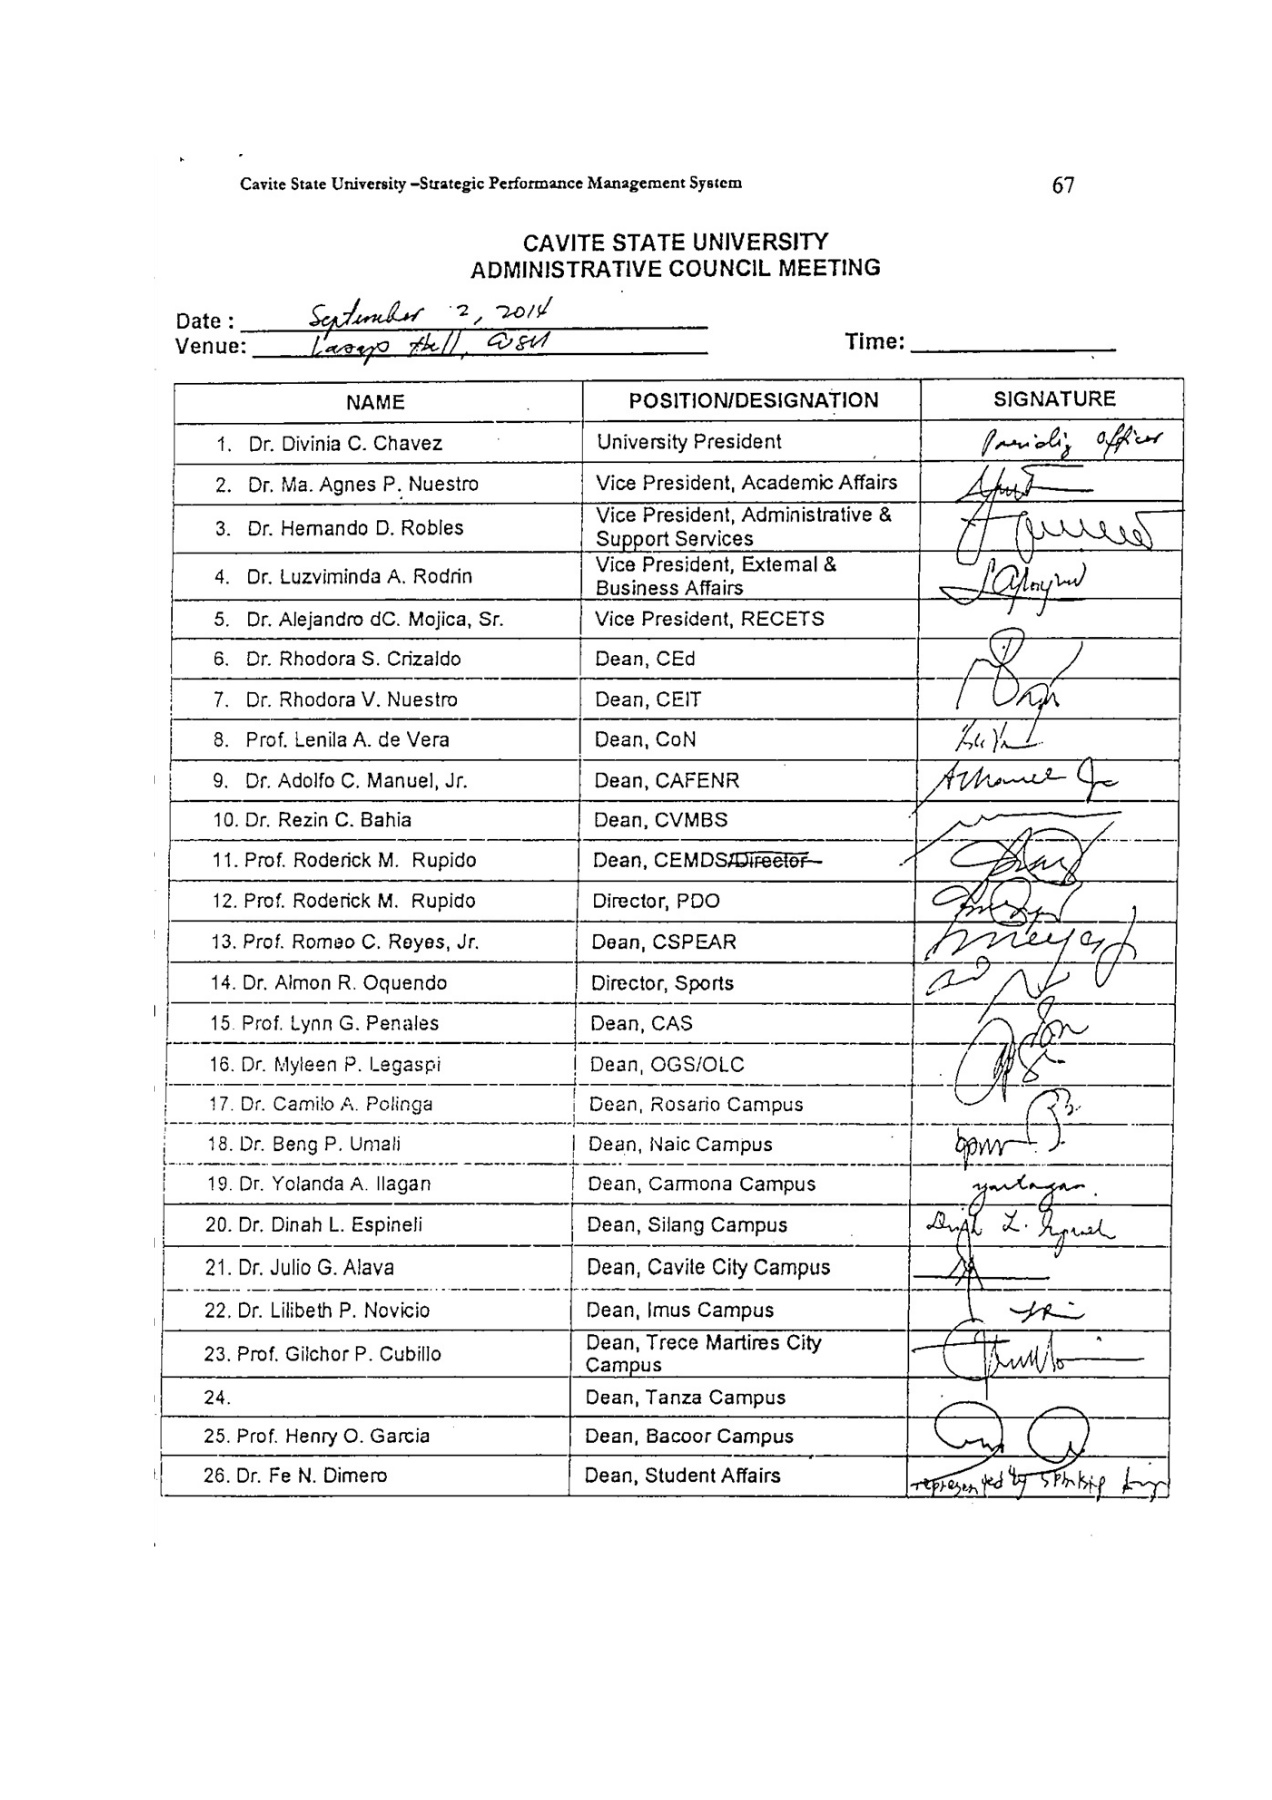 Cavite State University –Strategic Performance Management System 67
CAVITE STATE UNIVERSITY
ADMINISTRATIVE COUNCIL MEETING
Date : September 2, 2014
Venue: Hall, CvSU Time:
NAME POSITION/DESIGNATION SIGNATURE
1. Dr. Divinia C. Chavez University President Presiding Officer
2. Dr. Ma. Agnes P. Nuestro Vice President, Academic Affairs
3. Dr. Hernando D. Robles Vice President, Administrative &
Support Services
4. Dr. Luzviminda A. Rodrin Vice President, External &
Business Affairs
5. Dr. Alejandro dC. Mojica, Sr. Vice President, RECETS
6. Dr. Rhodora S. Crizaldo Dean, CEd
7. Dr. Rhodora V. Nuestro Dean, CEIT
8. Prof. Lenila A. de Vera Dean, CoN
9. Dr. Adolfo C. Manuel, Jr. Dean, CAFENR
10. Dr. Rezin C. Bahia Dean, CVMBS
11. Prof. Roderick M. Rupido Dean, CEMDS/Director
12. Prof. Roderick M. Rupido Director, PDO
13. Prof. Romeo C. Reyes, Jr. Dean, CSPEAR
14. Dr. Almon R. Oquendo Director, Sports
15. Prof. Lynn G. Penales Dean, CAS
16. Dr. Myleen P. Legaspi Dean, OGS/OLC
17. Dr. Camilo A. Polinga Dean, Rosario Campus
18. Dr. Beng P. Umali Dean, Naic Campus bpm
19. Dr. Yolanda A. Ilagan Dean, Carmona Campus
20. Dr. Dinah L. Espineli Dean, Silang Campus
21. Dr. Julio G. Alava Dean, Cavite City Campus
22. Dr. Lilibeth P. Novicio Dean, Imus Campus
23. Prof. Gilchor P. Cubillo Dean, Trece Martires City
Campus
24. Dean, Tanza Campus
25. Prof. Henry O. Garcia Dean, Bacoor Campus
26. Dr. Fe N. Dimero Dean, Student Affairs represented by